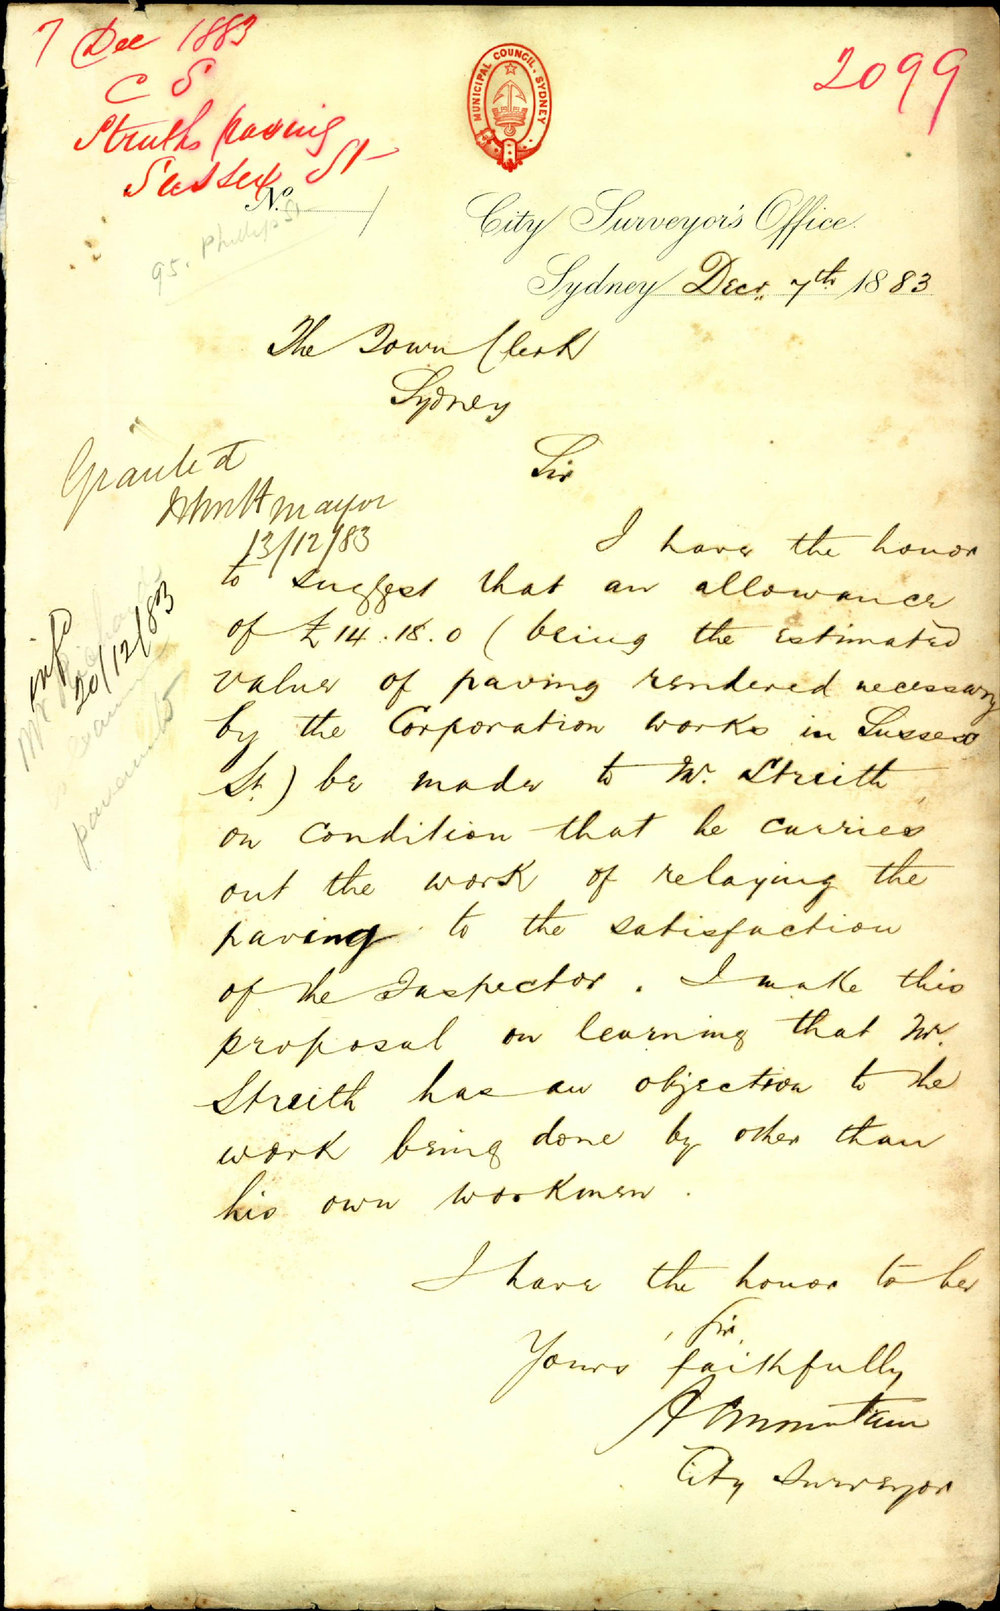 7 Dec 1883
C S
Struths paving
Sussex St
2099
MUNICIPAL COUNCIL. SYDNEY
No.
95. Phillip St
City Surveyor's Office.
Sydney Decr. 7th 1883
The Town Clerk
Sydney
Sir
Granted
mayor
13/12/83
20/12/83
I have the honor
to suggest that an allowance
of £14.18.0 (being the estimated
value of paving rendered necessary
by the Corporation works in Sussex
St.) be made to Mr. Streith
on condition that he carries
out the work of relaying the
paving to the satisfaction
of the Inspector. I make this
proposal on learning that Mr.
Streith has an objection to the
work being done by other than
his own workmen.
I have the honor to be
Sir,
Yours faithfully
A C Mountain
City Surveyor